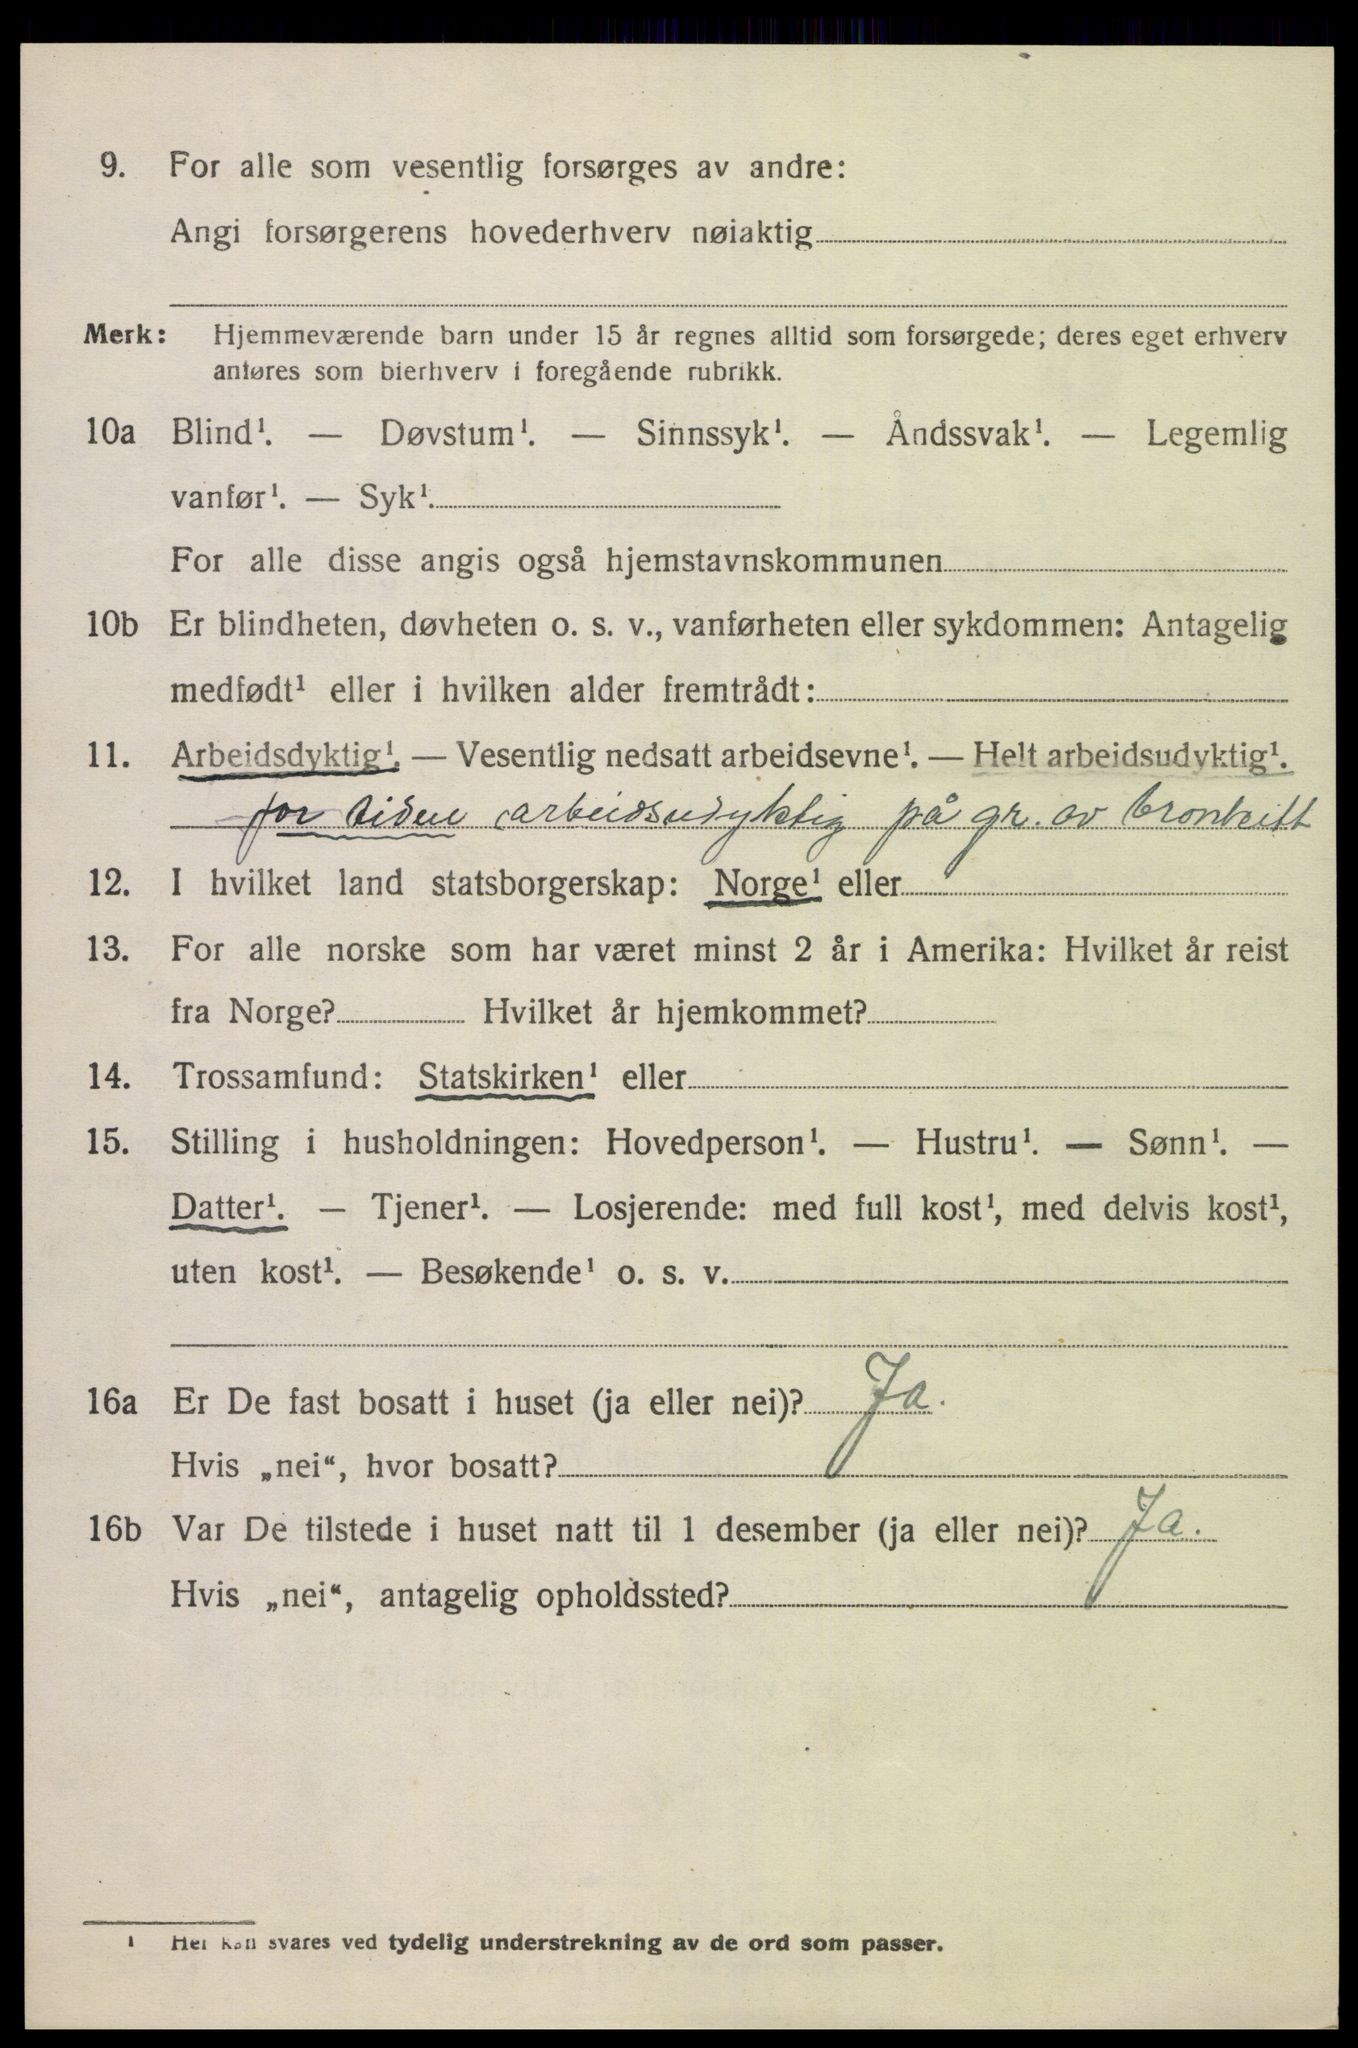 9. For alle som vesentlig forsørges av andre:
Angi forsørgerens hovederhverv nøiaktig
Merk: Hjemmeværende barn under 15 år regnes alltid som forsørgede; deres eget erhverv
anføres som bierhverv i foregående rubrikk.
10a Blind¹. — Døvstum¹. — Sinnssyk¹. — Åndssvak¹. — Legemlig
vanfør¹. — Syk¹.
For alle disse angis også hjemstavnskommunen
10b Er blindheten, døvheten o. s. v., vanførheten eller sykdommen: Antagelig
medfødt¹ eller i hvilken alder fremtrådt:
11. Arbeidsdyktig¹. — Vesentlig nedsatt arbeidsevne¹. — Helt arbeidsudyktig¹.
for tiden arbeidsudyktig på gr. av bronkitt
12. I hvilket land statsborgerskap: Norge¹ eller
13. For alle norske som har været minst 2 år i Amerika: Hvilket år reist
fra Norge? Hvilket år hjemkommet?
14. Trossamfund: Statskirken¹ eller
15. Stilling i husholdningen: Hovedperson¹. — Hustru¹. — Sønn¹. —
Datter¹. — Tjener¹. — Losjerende: med full kost¹, med delvis kost¹,
uten kost¹. — Besøkende¹ o. s. v.
16a Er De fast bosatt i huset (ja eller nei)? Ja.
Hvis „nei“, hvor bosatt?
16b Var De tilstede i huset natt til 1 desember (ja eller nei)? Ja.
Hvis „nei“, antagelig opholdssted?
¹ Her kan svares ved tydelig understrekning av de ord som passer.